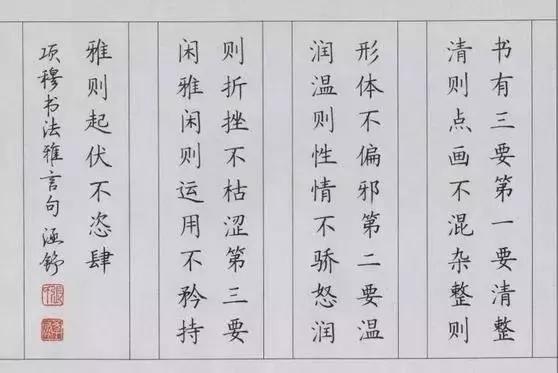 书有三要第一要清整
清则点画不混杂整则
形体不偏邪第二要温
润温则性情不骄怒润
则折挫不枯涩第三要
闲雅闲则运用不矜持
雅则起伏不恣肆
项穆书法雅言句